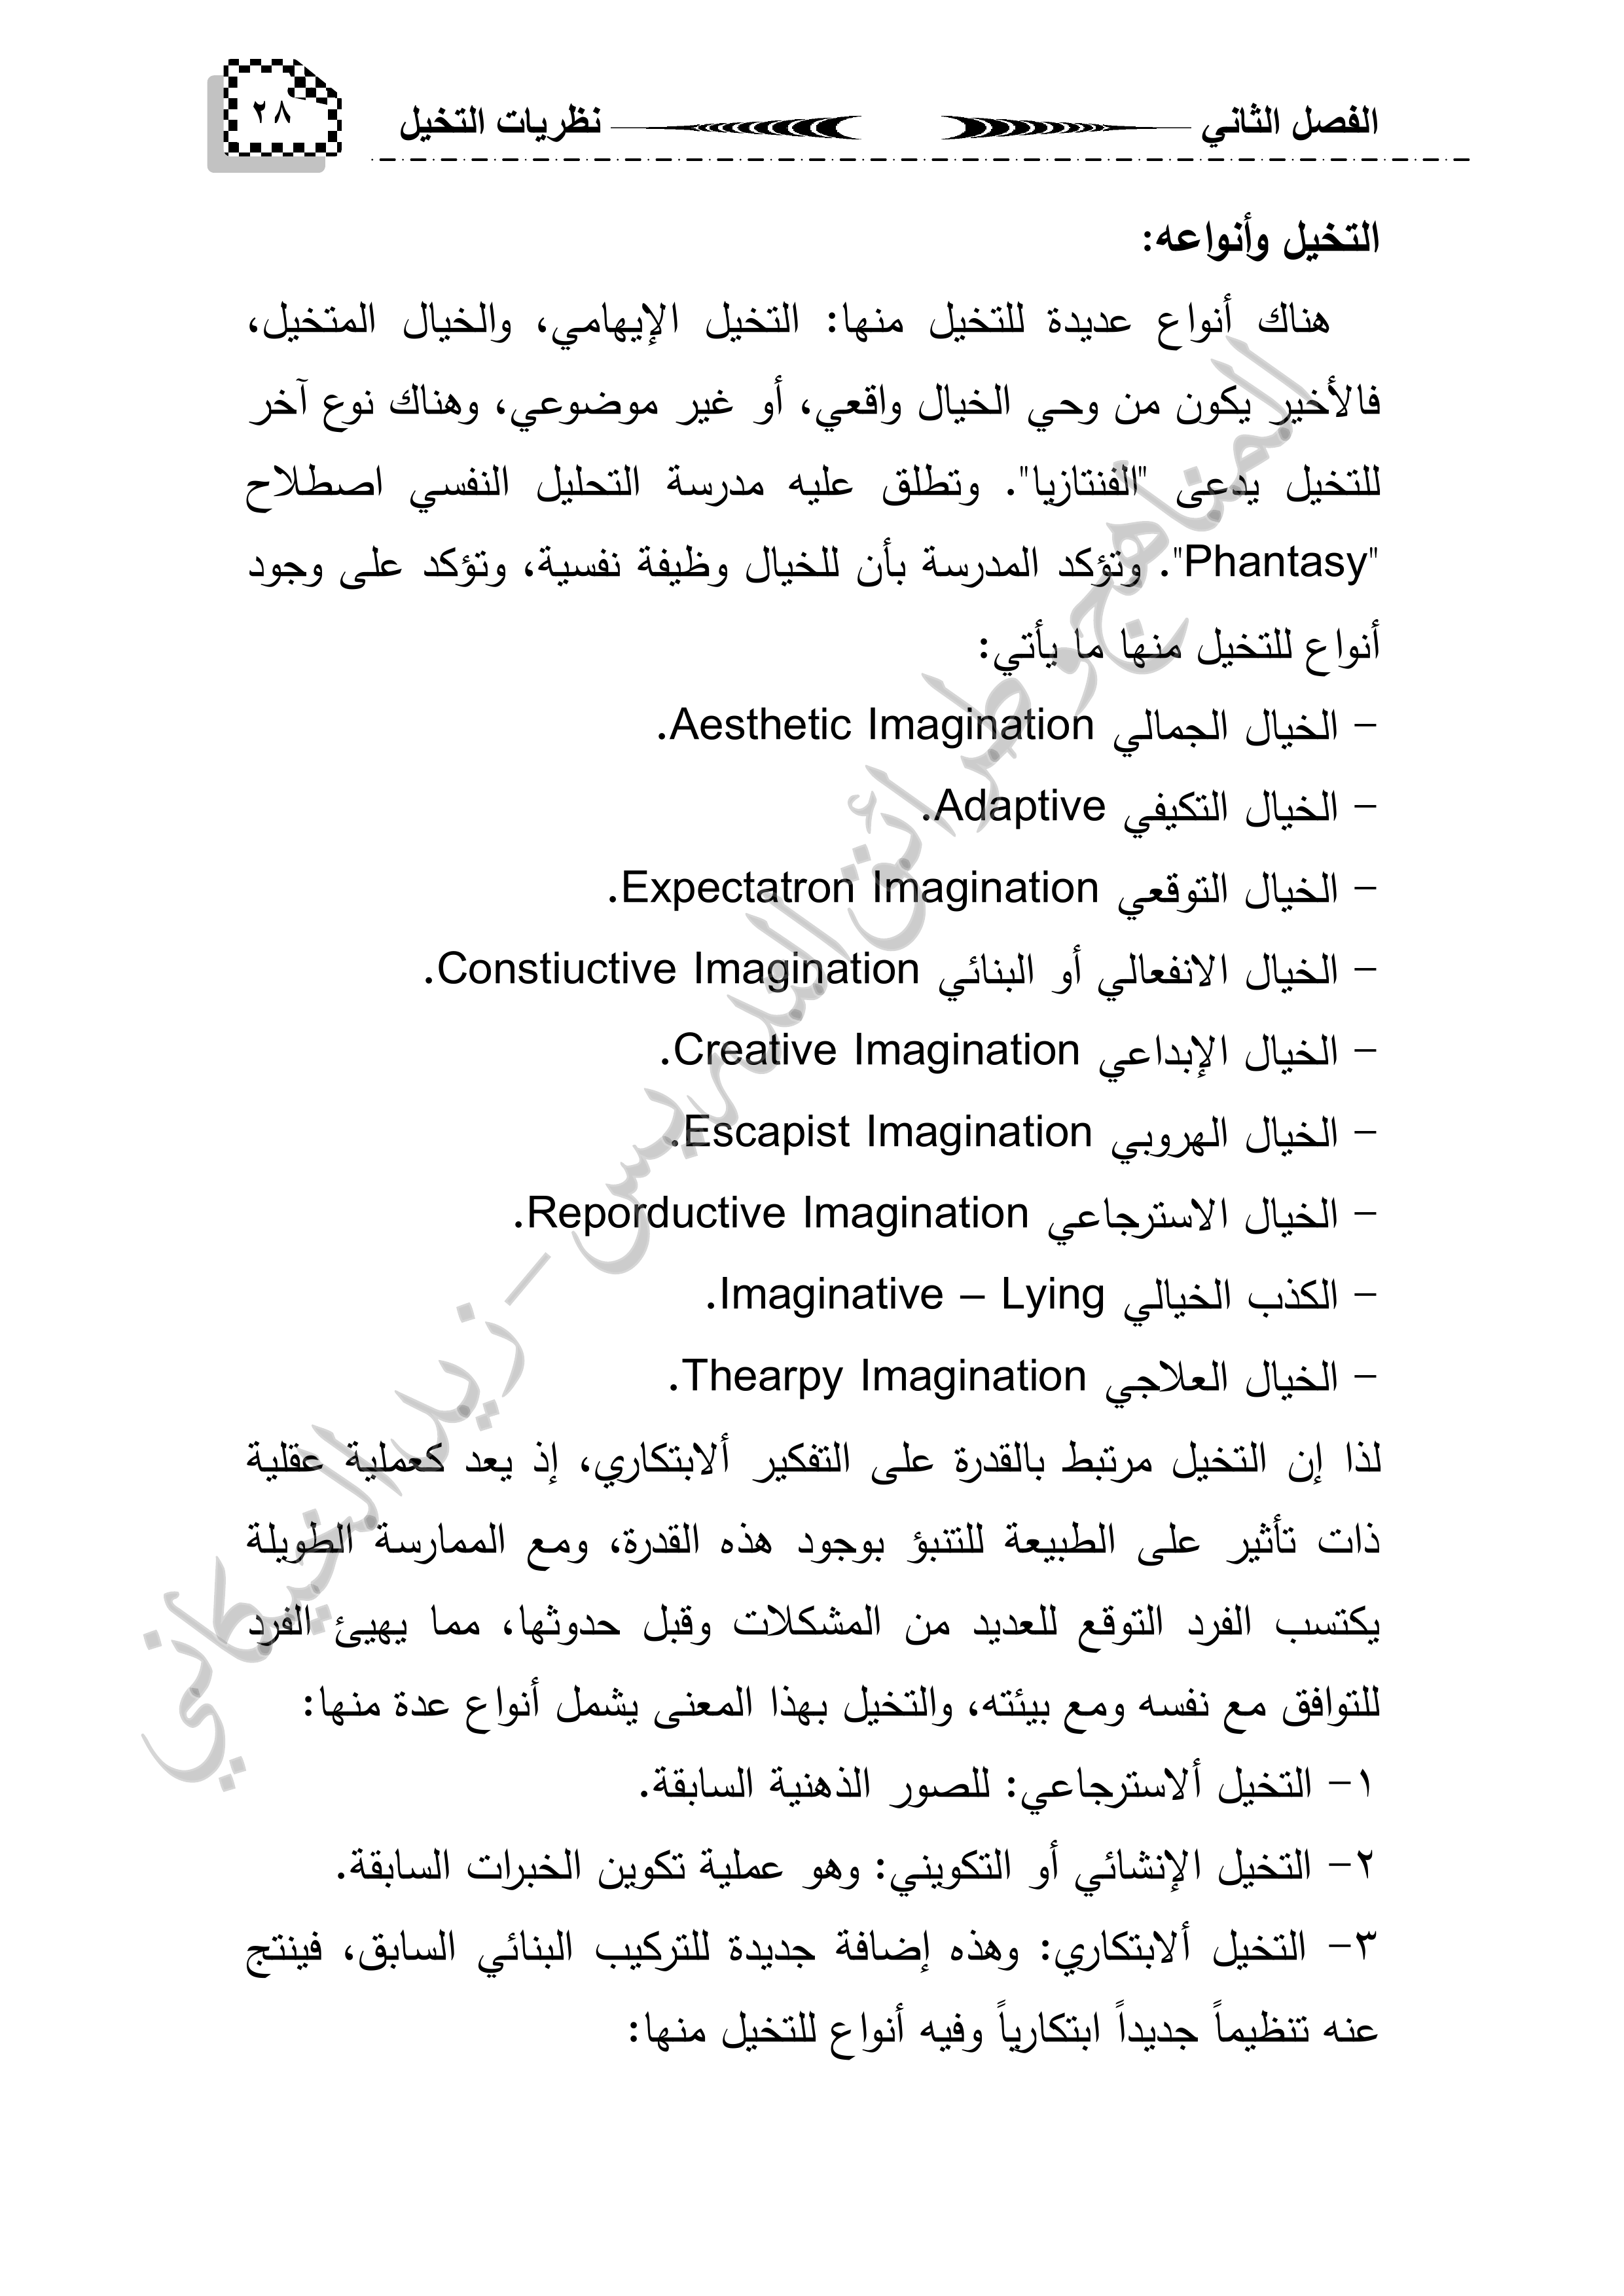 الفصل الثاني نظريات التخيل ٢٨
التخيل وأنواعه:
هناك أنواع عديدة للتخيل منها: التخيل الإيهامي، والخيال المتخيل،
فالأخير يكون من وحي الخيال واقعي، أو غير موضوعي، وهناك نوع آخر
للتخيل يدعى "الفنتازيا". وتطلق عليه مدرسة التحليل النفسي اصطلاح
"Phantasy". وتؤكد المدرسة بأن للخيال وظيفة نفسية، وتؤكد على وجود
أنواع للتخيل منها ما يأتي:
- الخيال الجمالي Aesthetic Imagination.
- الخيال التكيفي Adaptive.
- الخيال التوقعي Expectatron Imagination.
- الخيال الانفعالي أو البنائي Constiuctive Imagination.
- الخيال الإبداعي Creative Imagination.
- الخيال الهروبي Escapist Imagination.
- الخيال الاسترجاعي Reporductive Imagination.
- الكذب الخيالي Imaginative – Lying.
- الخيال العلاجي Thearpy Imagination.
لذا إن التخيل مرتبط بالقدرة على التفكير ألابتكاري، إذ يعد كعملية عقلية
ذات تأثير على الطبيعة للتتبؤ بوجود هذه القدرة، ومع الممارسة الطويلة
يكتسب الفرد التوقع للعديد من المشكلات وقبل حدوثها، مما يهيئ الفرد
للتوافق مع نفسه ومع بيئته، والتخيل بهذا المعنى يشمل أنواع عدة منها:
١- التخيل ألاسترجاعي: للصور الذهنية السابقة.
٢- التخيل الإنشائي أو التكويني: وهو عملية تكوين الخبرات السابقة.
٣- التخيل ألابتكاري: وهذه إضافة جديدة للتركيب البنائي السابق، فينتج
عنه تنظيماً جديداً ابتكارياً وفيه أنواع للتخيل منها:
المناهج وطرائق التدريس - زيد الخيكاني